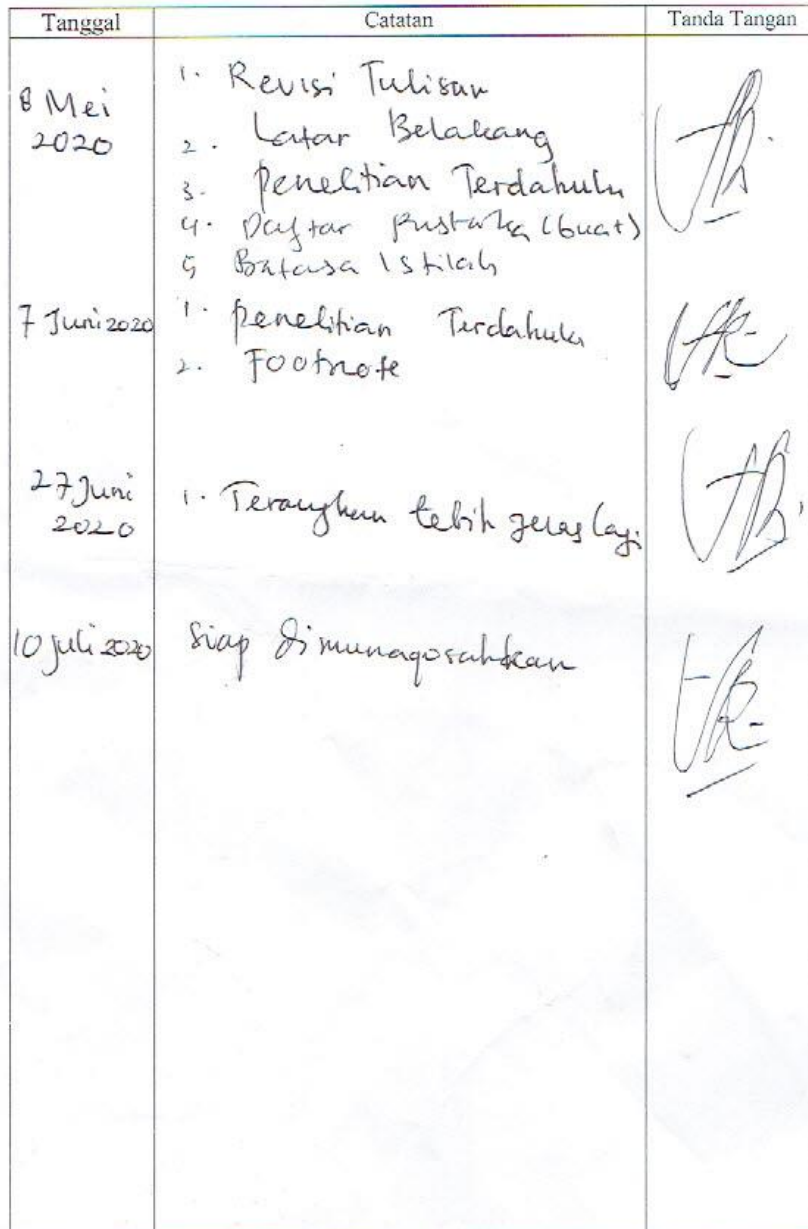 Tanggal Catatan Tanda Tangan
8 Mei 2020
1. Revisi Tulisan
2. Latar Belakang
3. Penelitian Terdahulu
4. Daftar Pustaka (buat)
5 Batasa Istilah
7 Juni 2020
1. Penelitian Terdahulu
2. Footnote
27 Juni 2020
1. Terangkan lebih jelas lagi
10 Juli 2020
Siap dimunaqosahkan